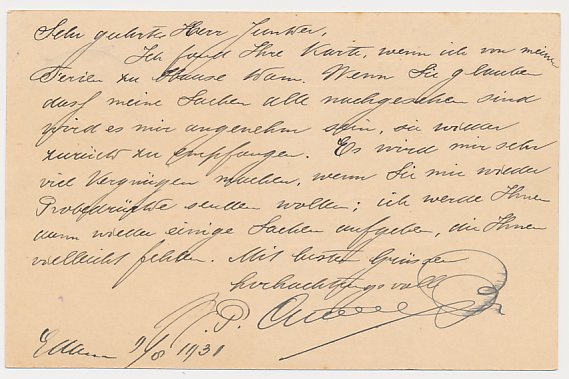 Sehr geehrter Herr Junker,
Ich fand Ihre Karte, wenn ich von meine
Ferien zu Hause kam. Wenn Sie glauben
dasz meine Sachen alle nachgesehen sind
wird es mir angenehm sein, sie wieder
zurück zu empfangen. Es wird mir sehr
viel Vergnügen machen, wenn Sie mir wieder
Probedrückte senden wollen; ich werde Ihnen
dann wieder einige Sachen aufgeben, die Ihnen
vielleicht fehlen. Mit besten Grüszen
hochachtungsvoll
P.
9/8 1931